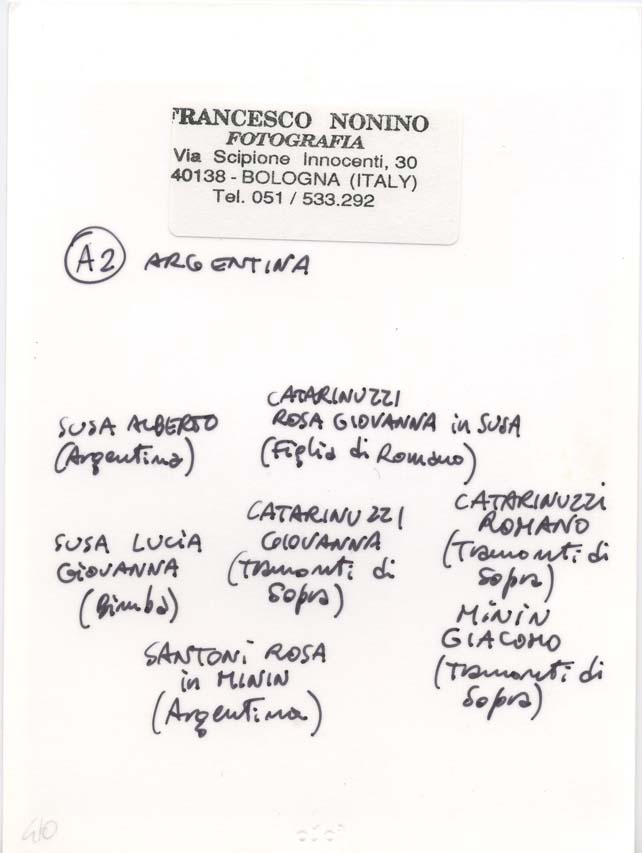 FRANCESCO NONINO
FOTOGRAFIA
Via Scipione Innocenti, 30
40138 - BOLOGNA (ITALY)
Tel. 051 / 533.292
A2 ARGENTINA
SUSA ALBERTO
(Argentina)
CATARINUZZI
ROSA GIOVANNA in SUSA
(Figlia di Romano)
SUSA LUCIA
GIOVANNA
(Bimba)
CATARINUZZI
GIOVANNA
(Tramonti di
Sopra)
CATARINUZZI
ROMANO
(Tramonti di
Sopra)
SANTONI ROSA
in MININ
(Argentina)
MININ
GIACOMO
(Tramonti di
Sopra)